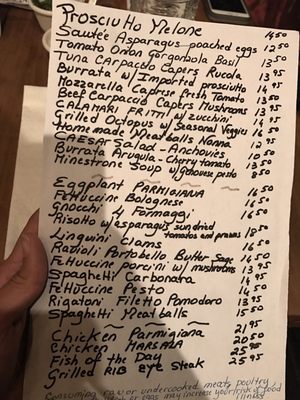 Prosciutto Melone 14 50
Sautée Asparagus - poached eggs 12 50
Tomato Onion Gorgonbola Basil 13 50
Tuna Carpaccio Capers Rucola 13 95
Burrata w/ Imported prosciutto 14 95
Mozzerella Caprese Fresh Tomato 13 50
Beef Carpaccio Capers Mushrooms 13 95
CALAMARI FRITTI w/ zucchini 14 95
Grilled Octopus w/ Seasonal Veggies 16 50
Homemade Meatballs Nonna 12 95
CAESAR Salad - Anchovies 10 50
Burrata Arugula - Cherry tomato 13 50
Minestrone Soup w/ Genovese pesto 8 50
Eggplant PARMIGIANA 16 50
Fettuccine Bolognese 16 50
Gnocchi 4 Formaggi 16 50
Risotto w/ asparagus sundried
tomatos and prawns
Linguini Clams
Ravioli Portobello Butter Sage 16 50
Fettuccine porcini w/ mushrooms
Spaghetti Carbonara
Fettuccine Pesto 14 50
Rigatoni Filetto Pomodoro 13 95
Spaghetti Meatballs 15 50
Chicken Parmigiana 21 95
Chicken MARSALA 20 50
Fish of the Day 25 95
Grilled RIB eye steak 25 95
Consuming raw or undercooked meats poultry
or eggs may increase your risk of food
illness